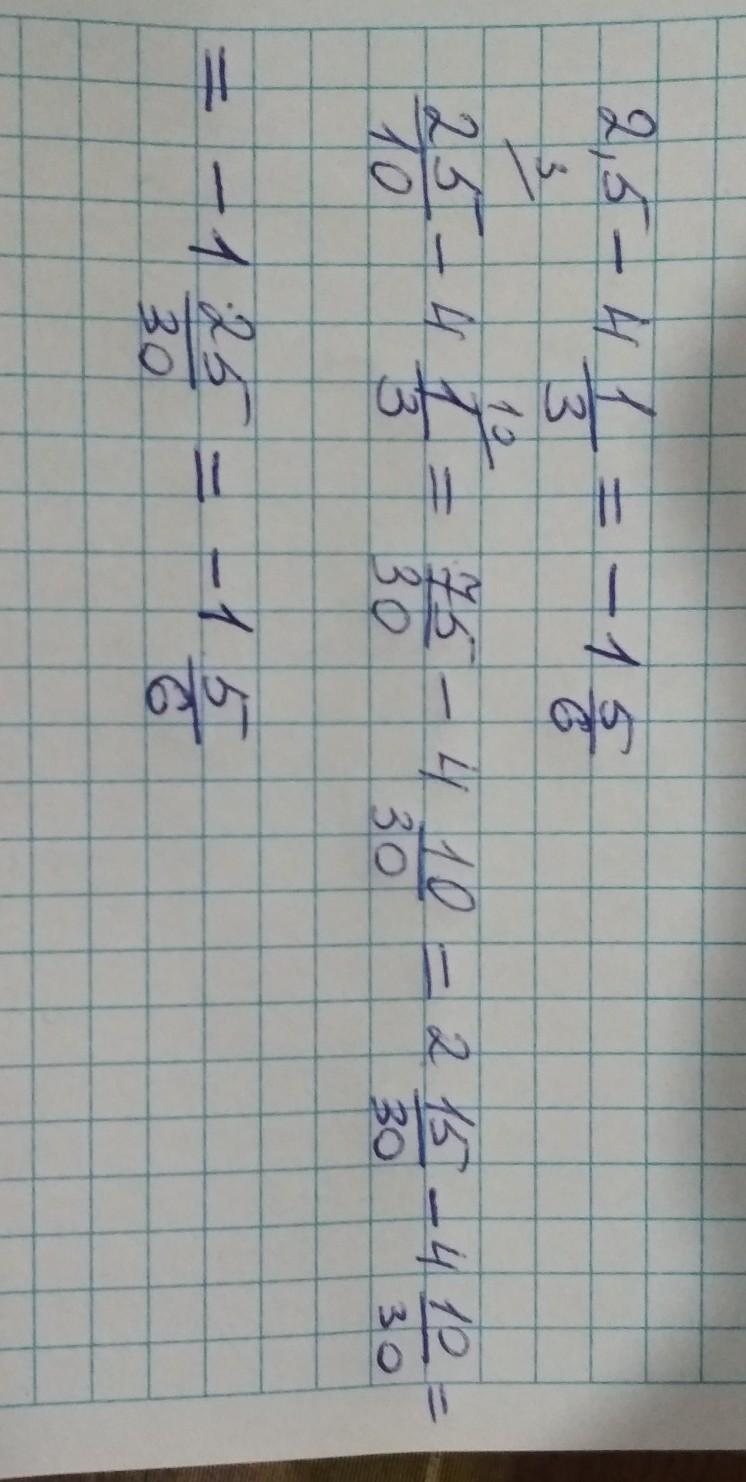 2,5 - 4 1/3 = -1 5/6
25/10 ³ - 4 1/3 ¹⁰ = 75/30 - 4 10/30 = 2 15/30 - 4 10/30 =
= -1 25/30 = -1 5/6